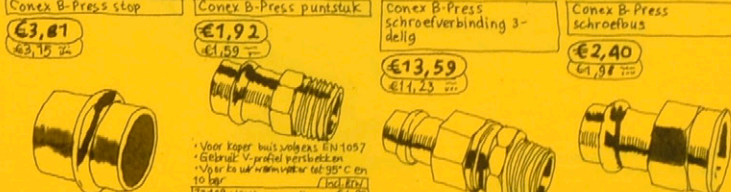 Conex B-Press stop
€3,81
€3,15
Conex B-Press puntstuk
€1,92
€1,59
• Voor koper buis volgens EN 1057
• Gebruik V-profiel persbekken
• Voor koud/warm water tot 95°C en
10 bar
Conex B-Press
schroefverbinding 3-
delig
€13,59
€11,23
Conex B-Press
schroefbus
€2,40
€1,98